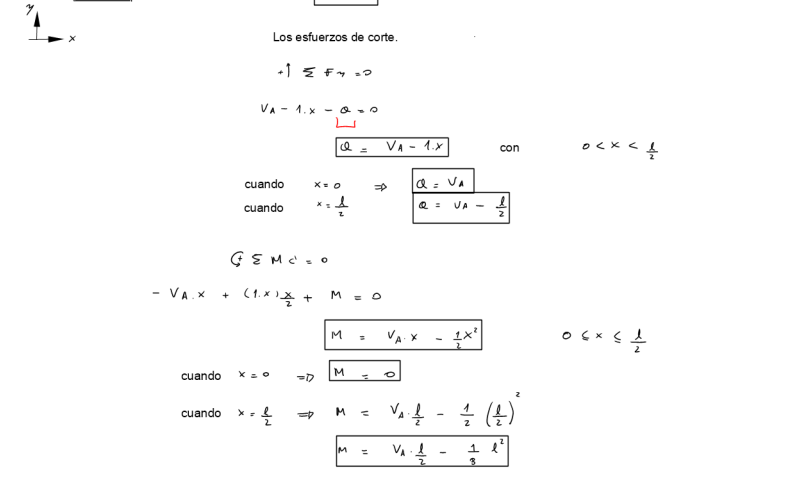 y
x
Los esfuerzos de corte.
+↑ Σ Fy = 0
VA - 1.x - Q = 0
Q = VA - 1.x con 0 < x < l/2
cuando x = 0 ⇒ Q = VA
cuando x = l/2 Q = VA - l/2
Σ Mc' = 0
- VA.x + (1.x) x/2 + M = 0
M = VA.x - 1/2 x² 0 ≤ x ≤ l/2
cuando x = 0 ⇒ M = 0
cuando x = l/2 ⇒ M = VA.l/2 - 1/2 (l/2)²
M = VA.l/2 - 1/8 l²